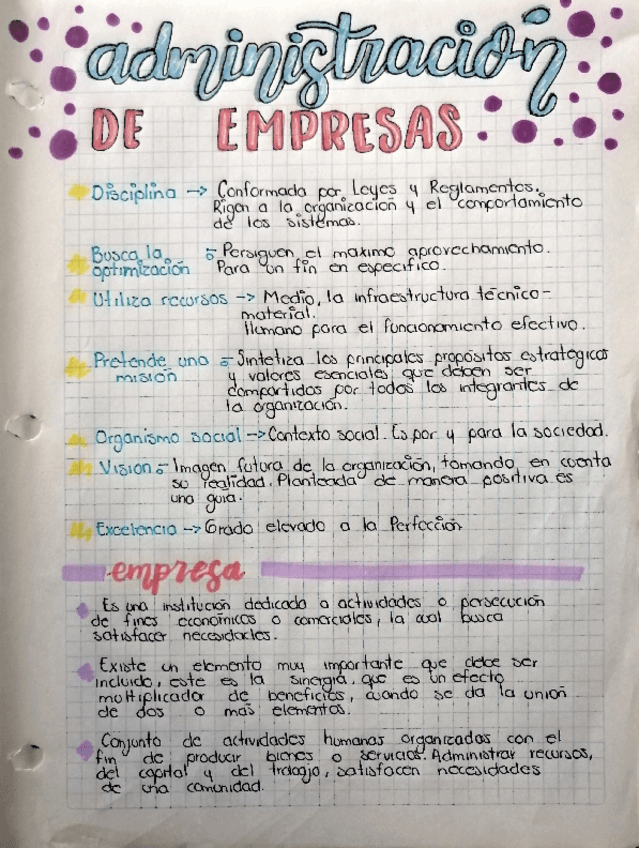 administración
DE EMPRESAS
Disciplina -> Conformada por Leyes y Reglamentos.
Rigen a la organización y el comportamiento
de los sistemas.
Busca la optimización
Persiguen el maximo aprovechamiento.
Para un fin en especifico.
Utiliza recursos -> Medio, la infraestructura técnico-
material.
Humano para el funcionamiento efectivo.
Pretende una misión
Sintetiza los principales propósitos estratégicos
y valores esenciales que deben ser
compartidos por todos los integrantes de
la organización.
Organismo social -> Contexto social. Es por y para la sociedad.
Vision: Imagen futura de la organización, tomando en cuenta
su realidad. Planteada de manera positiva es
una guia.
Excelencia -> Grado elevado a la Perfección
empresa
Es una institución dedicada a actividades o persecución
de fines económicos o comerciales, la cual busca
satisfacer necesidades.
Existe un elemento muy importante que debe ser
incluido, este es la sinergia, que es un efecto
multiplicador de beneficios, cuando se da la unión
de dos o más elementos.
Conjunto de actividades humanas organizadas con el
fin de producir bienes o servicios. Administrar recursos,
del capital y del trabajo, satisfacen necesidades
de una comunidad.